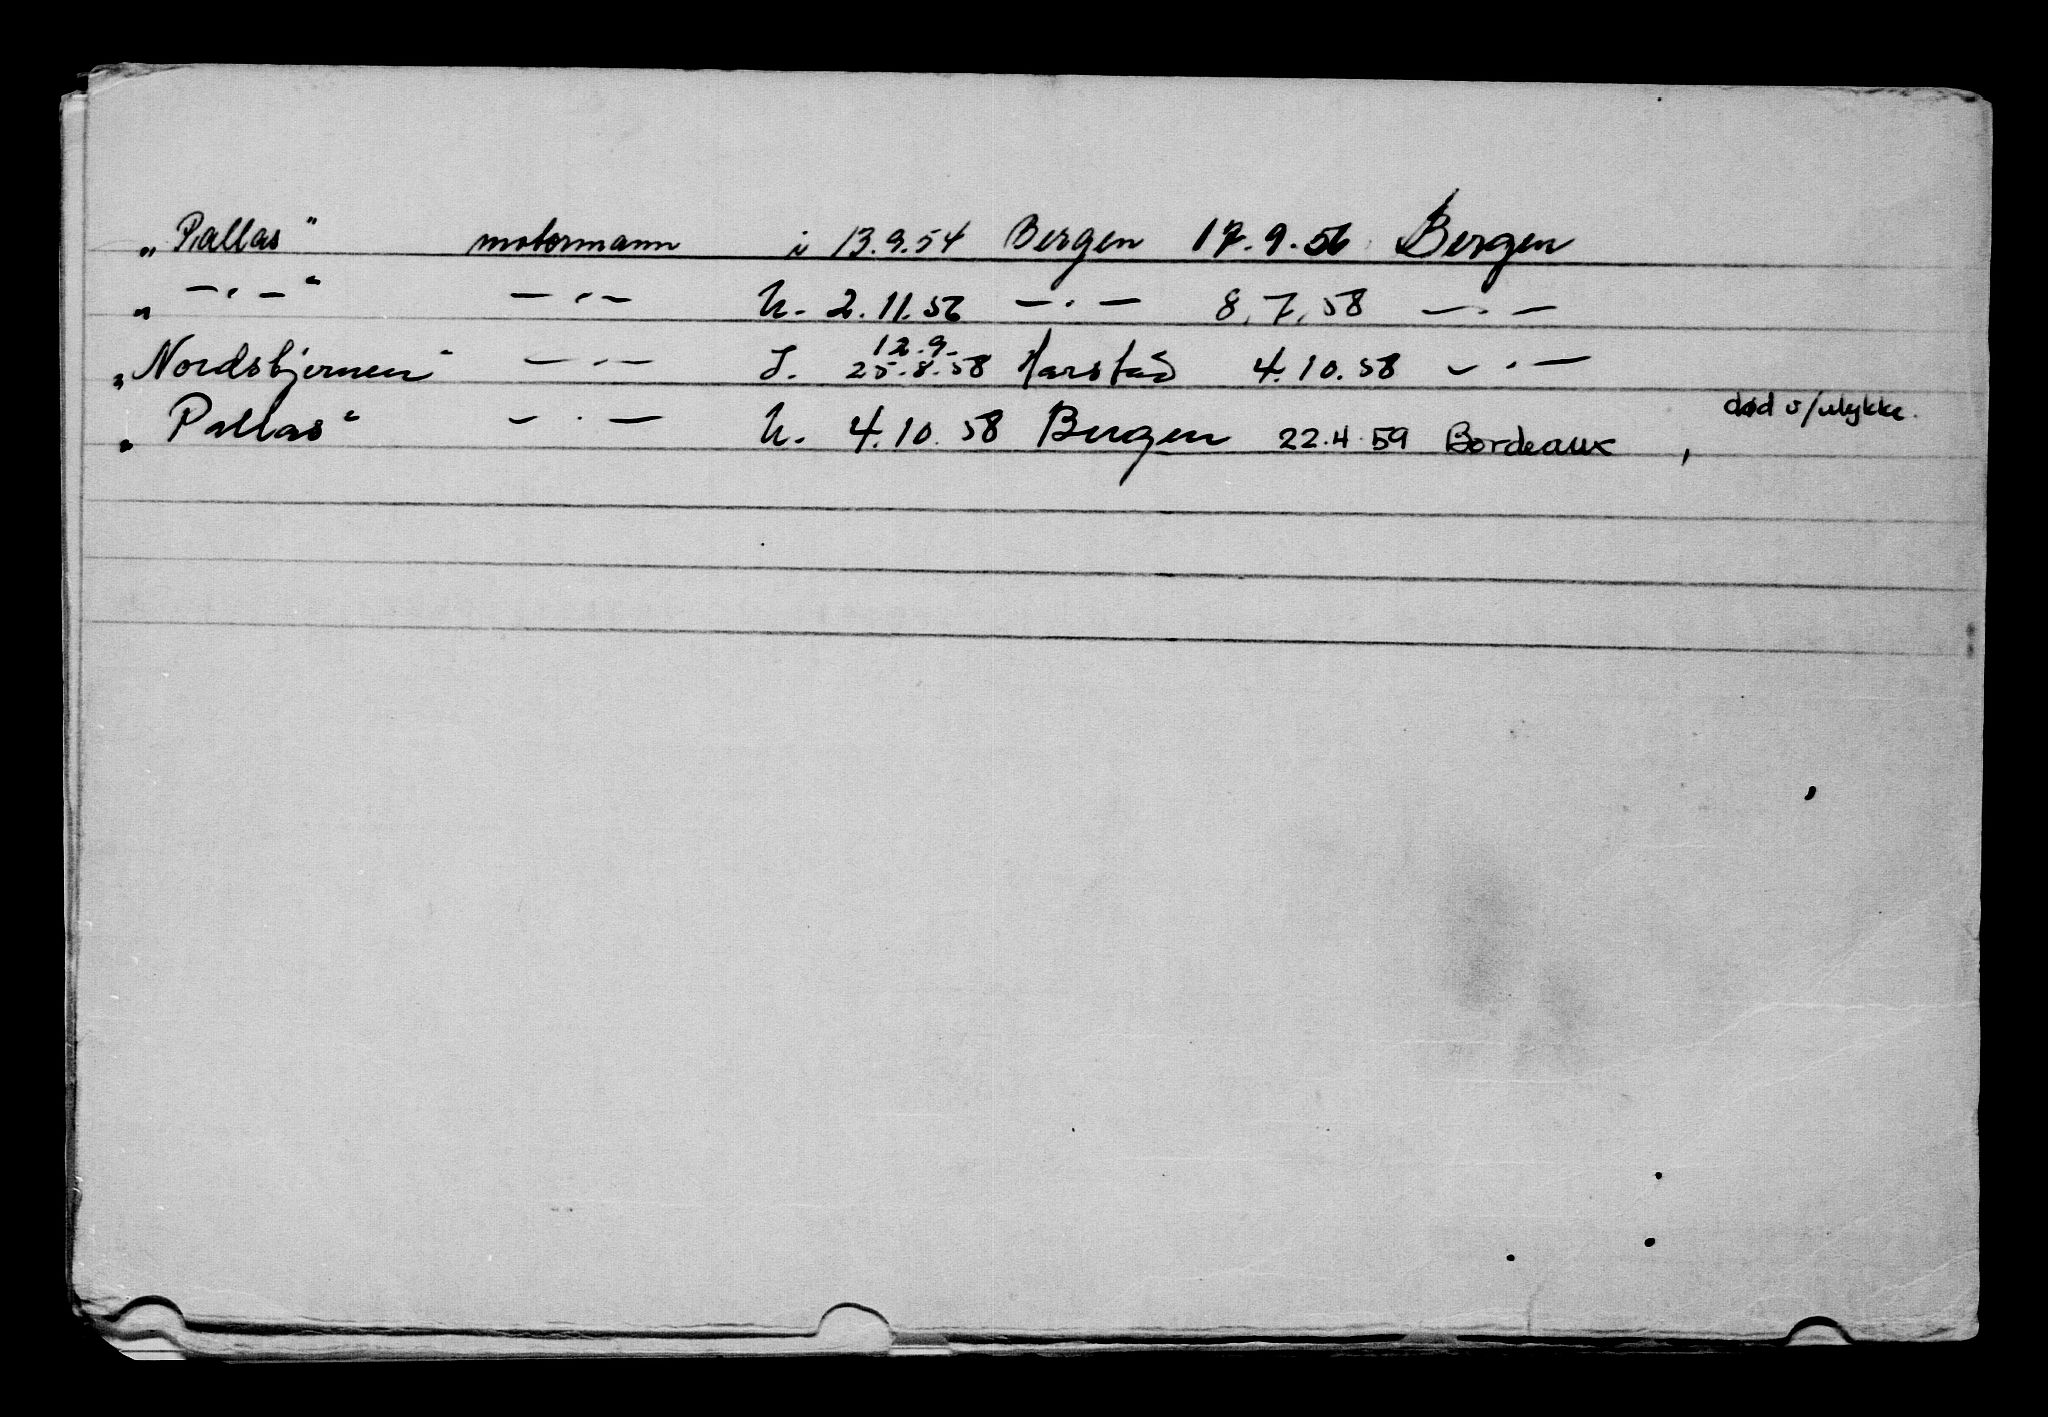 „Pallas" motormann i 13.9.54 Bergen 17.9.56 Bergen
„ — . — " — . — U. 2.11.56 — . — 8.7.58 — . —
12.9.
„Nordstjernen" — . — I. 25.8.58 Harstad 4.10.58 — . —
død v/ulykke.
„Pallas" — . — U. 4.10.58 Bergen 22.4.59 Bordeaux,